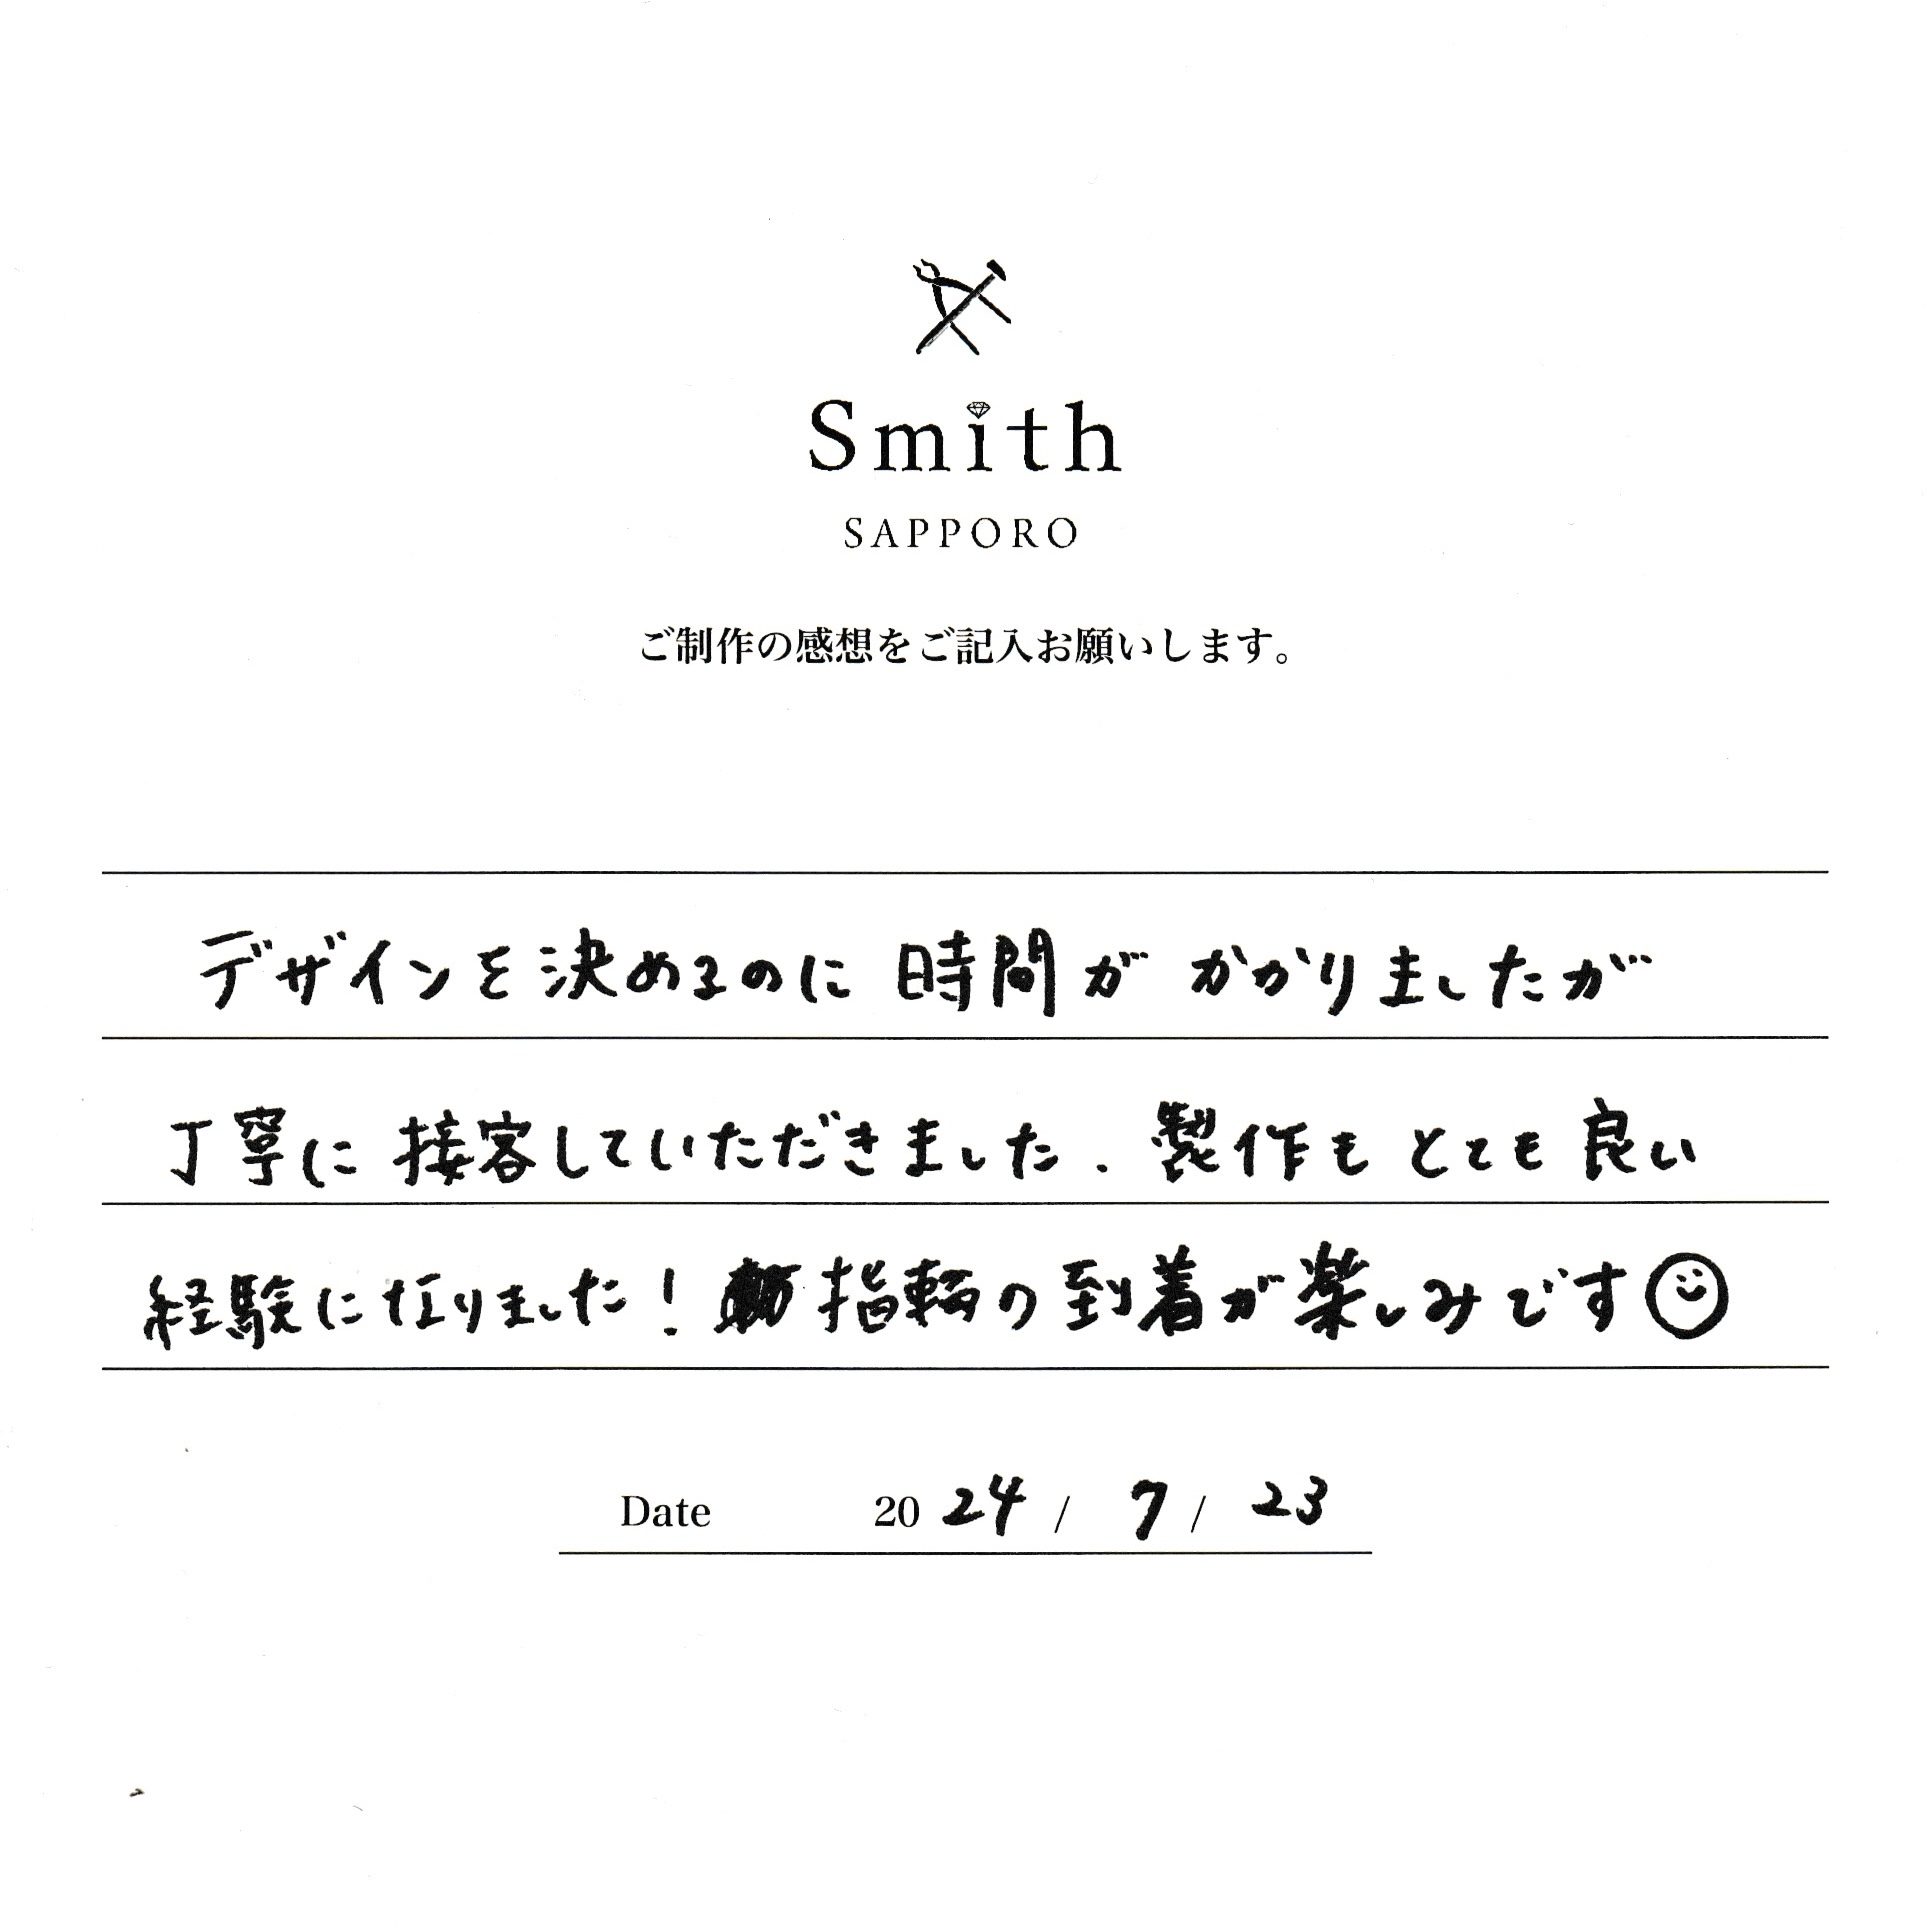 Smith
SAPPORO
ご制作の感想をご記入お願いします。
デザインを決めるのに時間がかかりましたが
丁寧に接客していただきました.製作もとても良い
経験になりました!指輪の到着が楽しみです
Date 2024/7/23